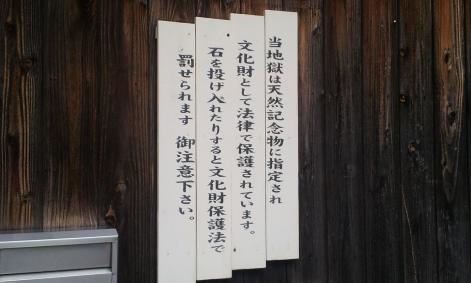 当地獄は天然記念物に指定され
文化財として法律で保護されています。
石を投げ入れたりすると文化財保護法で
罰せられます 御注意下さい。